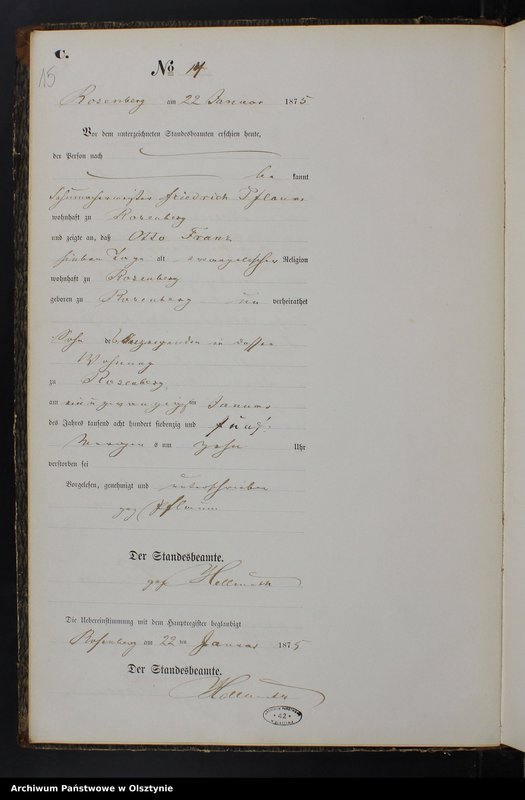 C.
15
No 14
Rosenberg am 22 Januar 1875
Vor dem unterzeichneten Standesbeamten erschien heute,
der Person nach
be kannt
Schuhmachermeister Friedrich Pflaum
wohnhaft zu Rosenberg
und zeigte an, daß Otto Franz
sieben Tage alt evangelischer Religion
wohnhaft zu Rosenberg
geboren zu Rosenberg un verheirathet
Sohn des Anzeigenden in dessen
Wohnung
zu Rosenberg
am ein und zwanzigsten Januar
des Jahres tausend acht hundert siebenzig und fünf
Morgens um zehn Uhr
verstorben sei
Vorgelesen, genehmigt und unterschrieben
gez Pflaum
Der Standesbeamte.
gez Hellmuth
Die Uebereinstimmung mit dem Hauptregister beglaubigt
Rosenberg am 22 ten Januar 1875
Der Standesbeamte.
Hellmuth
42
Archiwum Państwowe w Olsztynie